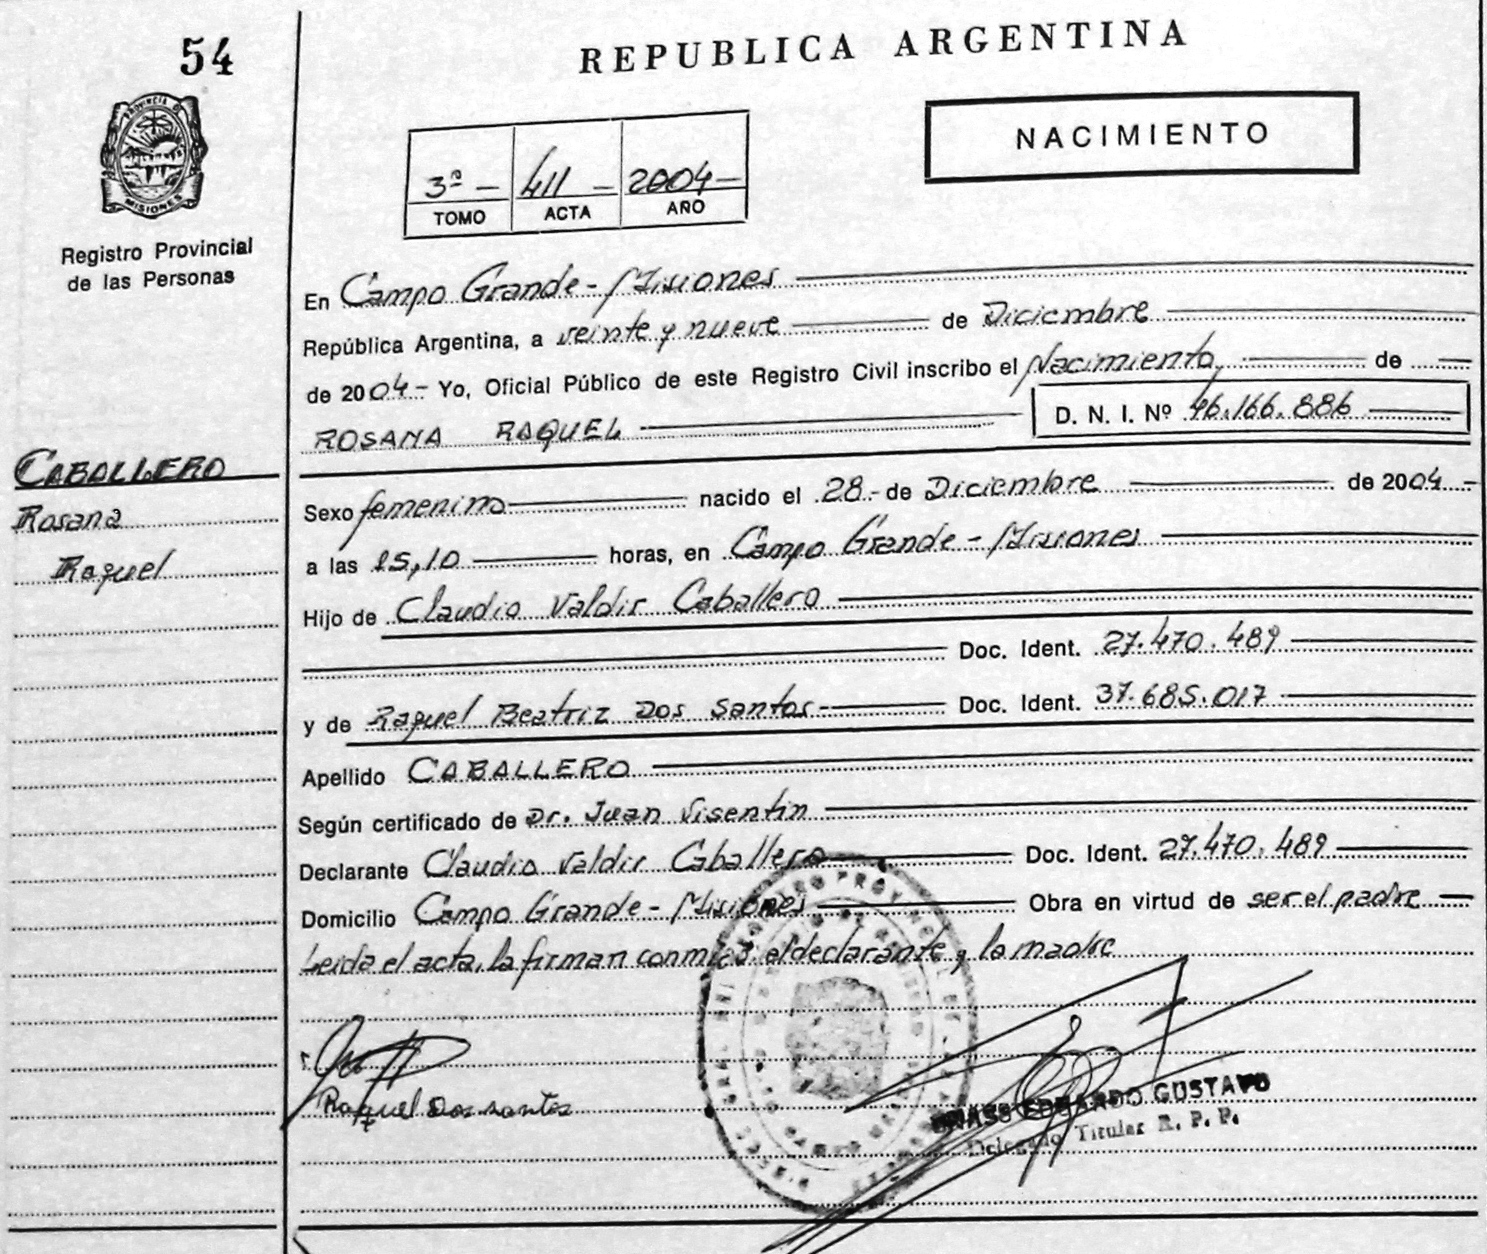 54
REPUBLICA ARGENTINA
PROVINCIA DE
MISIONES
Registro Provincial
de las Personas
NACIMIENTO
3º - 411 - 2004 -
TOMO ACTA AÑO
En Campo Grande - Misiones
República Argentina, a veinte y nueve de Diciembre
de 2004 - Yo, Oficial Público de este Registro Civil inscribo el Nacimiento, de
ROSANA RAQUEL D. N. I. Nº 46.166.886
CABALLERO
Rosana
Raquel
Sexo femenino nacido el 28 - de Diciembre de 2004 -
a las 15,10 horas, en Campo Grande - Misiones
Hijo de Claudio Valdir Caballero
Doc. Ident. 27.470.489
y de Raquel Beatriz Dos Santos - Doc. Ident. 37.685.017
Apellido CABALLERO
Según certificado de Dr. Juan Visentin
Declarante Claudio Valdir Caballero Doc. Ident. 27.470.489
Domicilio Campo Grande - Misiones Obra en virtud de ser el padre
Leida el acta, la firman conmigo el declarante y la madre
Raquel Dos santos
EDUARDO GUSTAVO
Delegado Titular R. P. P.